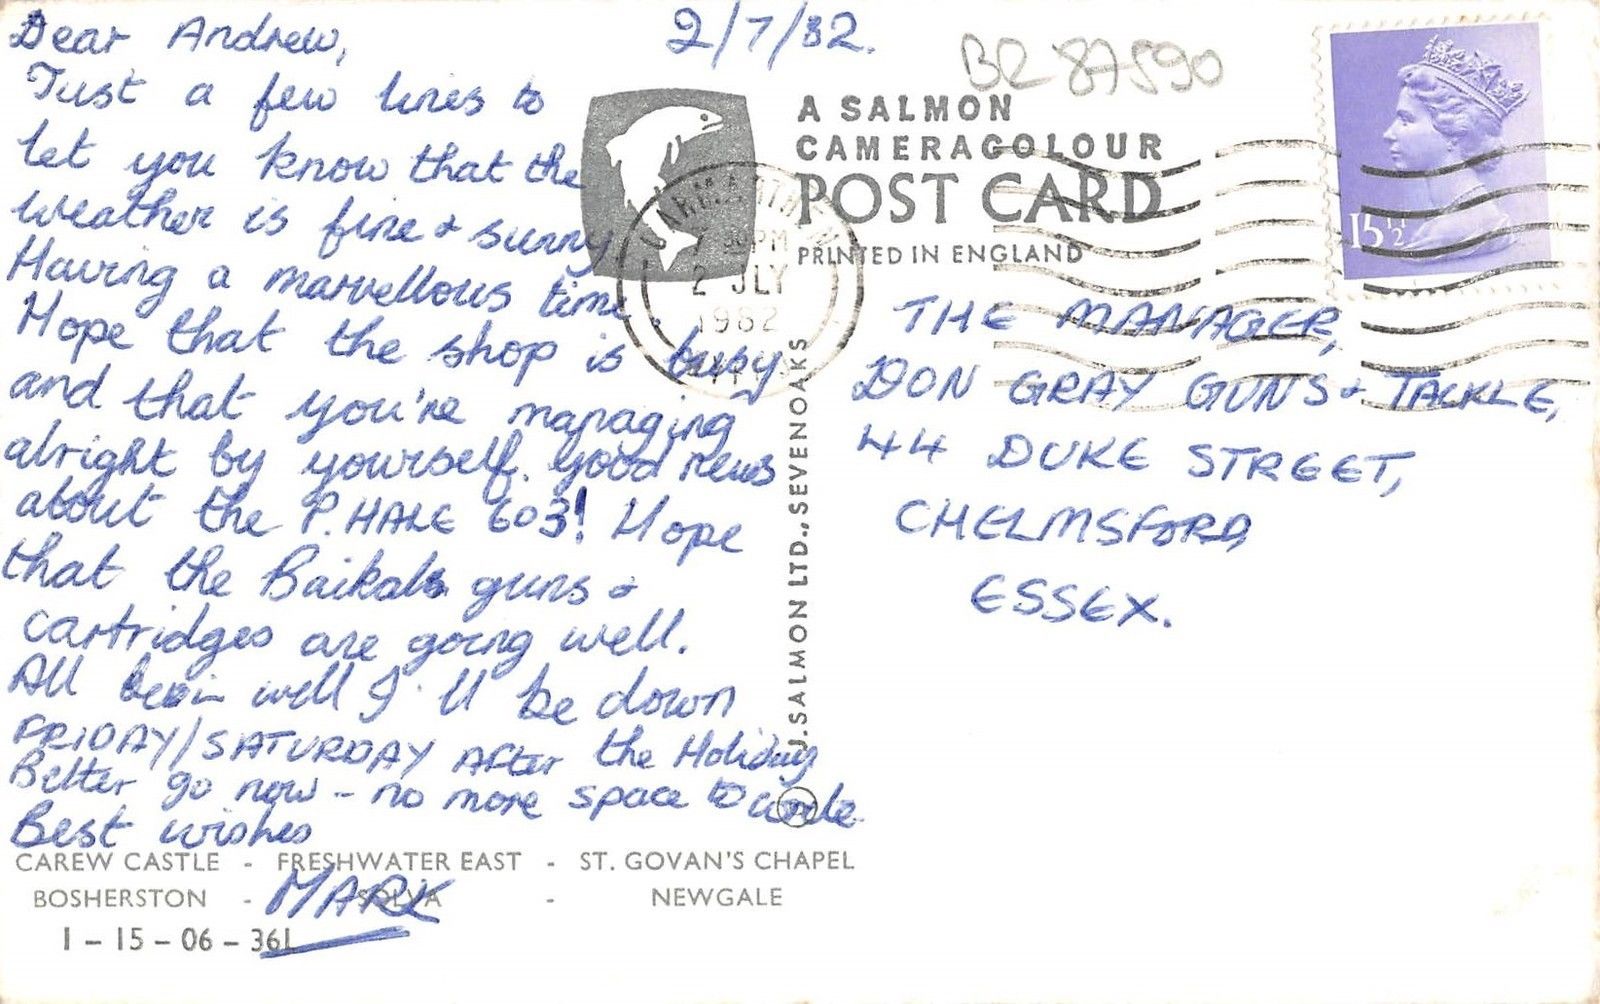 Dear Andrew,
2/7/82.
Just a few lines to
let you know that the
weather is fine + sunny
Having a marvellous time.
Hope that the shop is busy
and that you're managing
alright by yourself. Good news
about the P. HALE 603! Hope
that the Baikals guns +
cartridges are going well.
All being well I'll be down
FRIDAY/SATURDAY AFTER the Holiday
Better go now - no more space to write.
Best wishes
MARK
CAREW CASTLE - FRESHWATER EAST - ST. GOVAN'S CHAPEL
BOSHERSTON - SOLVA - NEWGALE
1 - 15 - 06 - 36L
BR 87590
A SALMON
CAMERACOLOUR
POST CARD
PRINTED IN ENGLAND
CARMARTHEN
PM
2 JLY
1982
J. SALMON LTD., SEVENOAKS
15½P
THE MANAGER,
DON GRAY GUNS + TACKLE,
44 DUKE STREET,
CHELMSFORD,
ESSEX.